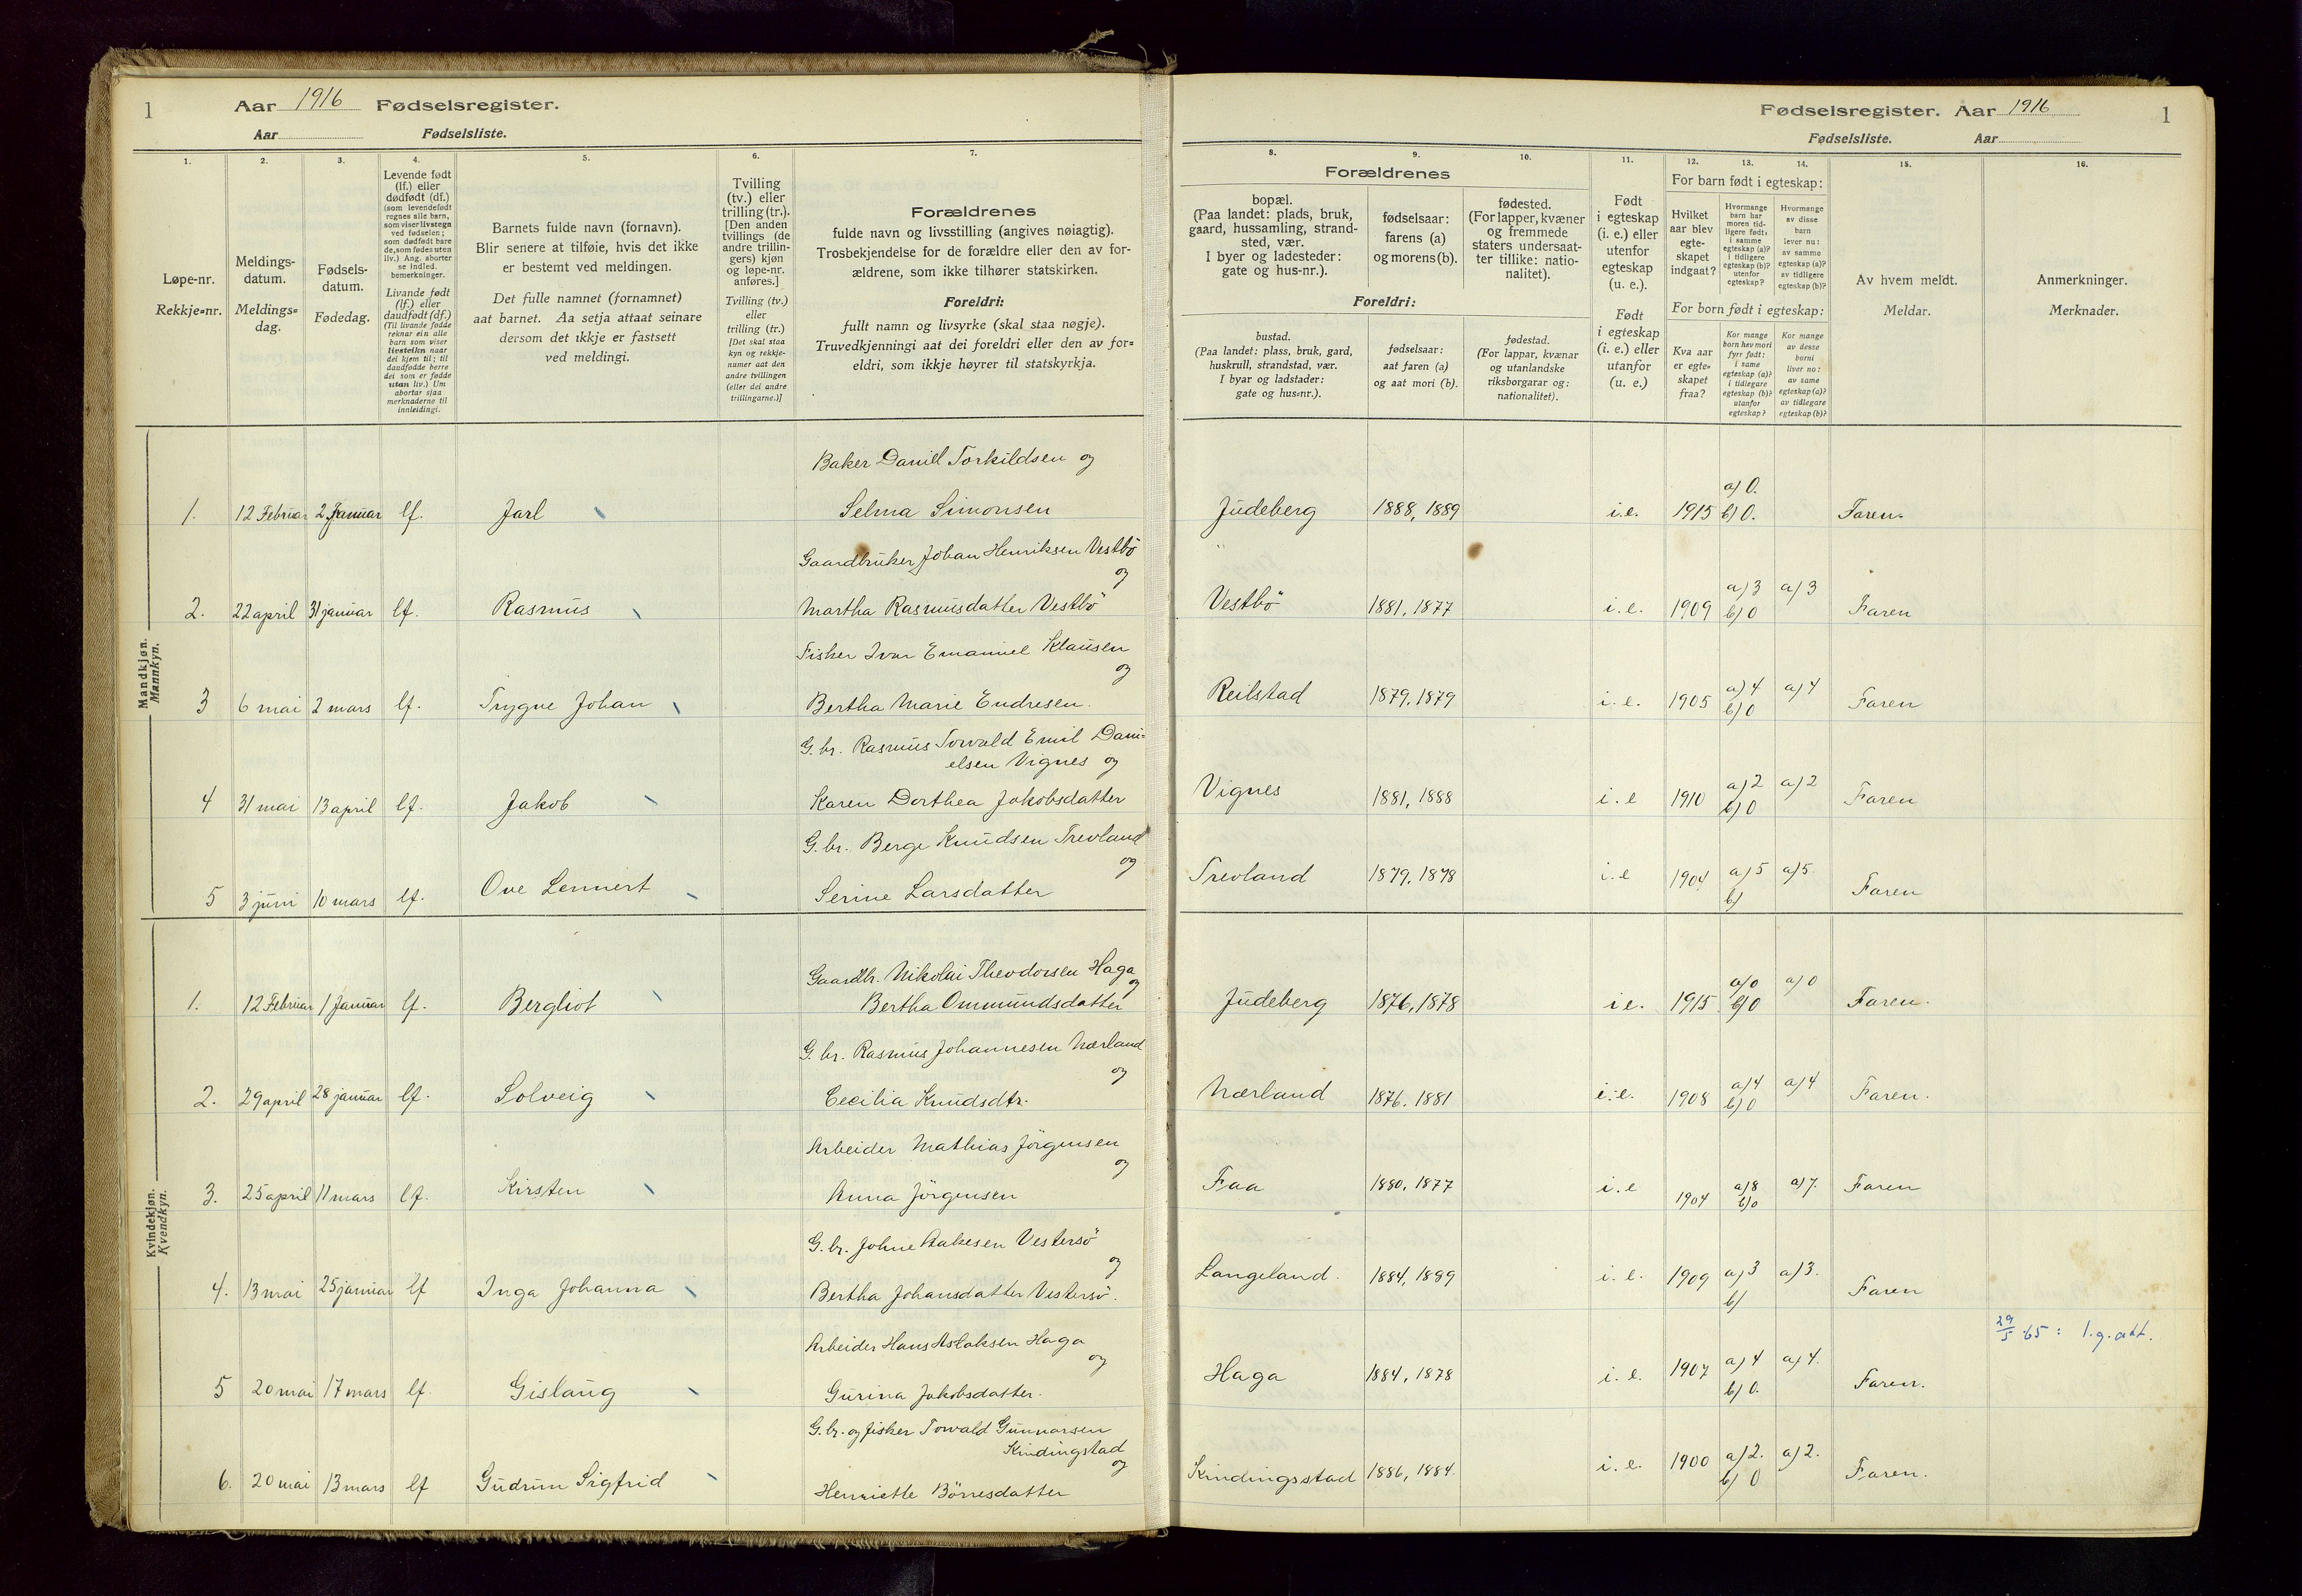 1
Aar 1916 Fødselsregister.
Aar Fødselsliste.
1.
2.
3.
4.
5.
6.
7.
Løpe-nr.
Rekkje=nr.
Meldings-
datum.
Meldings=
dag.
Fødsels-
datum.
Fødedag.
Levende født
(lf.) eller
dødfødt (df.)
(som levendefødt
regnes alle barn,
som viser livstegn
ved fødselen;
som dødfødt bare
de, som fødes uten
liv.) Ang. aborter
se indled.
bemerkninger.
Livande født
(lf.) eller
daudfødt (df.)
(Til livande fødde
reknar ein alle
barn som viser
livsteikn naar
dei kjem til; til
daudfødde berre
dei som er fødde
utan liv.) Um
abortar sjaa
merknaderne til
innleidingi.
Barnets fulde navn (fornavn).
Blir senere at tilføie, hvis det ikke
er bestemt ved meldingen.
Det fulle namnet (fornamnet)
aat barnet. Aa setja attaat seinare
dersom det ikkje er fastsett
ved meldingi.
Tvilling
(tv.) eller
trilling (tr.).
[Den anden
tvillings (de
andre trillin-
gers) kjøn
og løpe-nr.
anføres.]
Tvilling (tv.)
eller
trilling (tr.)
[Det skal staa
kyn og rekkje-
numer aat den
andre tvillingen
(eller dei andre
trillingarne.)]
Forældrenes
fulde navn og livsstilling (angives nøiagtig).
Trosbekjendelse for de forældre eller den av for-
ældrene, som ikke tilhører statskirken.
Foreldri:
fullt namn og livsyrke (skal staa nøgje).
Truvedkjenningi aat dei foreldri eller den av for=
eldri, som ikkje høyrer til statskyrkja.
Mandkjøn.
Mannkyn.
Baker Daniel Torkildsen og
1. 12 Februar 2 Januar lf. Jarl Selma Simonsen
Gaardbruker Johan Henriksen Vestbö
og
2. 22 april 31 januar lf. Rasmus Martha Rasmusdatter Vestbö
Fisker Ivar Emanuel Klausen
og
3 6 mai 2 mars lf. Trygve Johan Bertha Marie Endresen.
G. br. Rasmus Torvald Emil Dani=
elsen Vignes og
4 31 mai 13 april lf. Jakob Karen Dorthea Jakobsdatter
G. br. Berge Knudsen Trevland
og
5 3 juni 10 mars lf. Ove Lennert Serine Larsdatter
Kvindekjøn.
Kvendkyn.
Gaardbr. Nikolai Theodorsen Haga
og
1. 12 Februar 1 Januar lf. Bergliot Bertha Ommundsdatter
G. br. Rasmus Johannesen Nærland
og
2. 29 april 28 januar lf. Solveig Cecilia Knudsdtr.
Arbeider Mathias Jörgensen
og
3. 25 april 11 mars lf. Kirsten Anna Jörgensen
G. br. Johne Aakesen Vestersö
og
4. 13 mai 25 januar lf Inga Johanna Bertha Johansdatter Vestersö.
Arbeider Hans Aslaksen Haga
og
5 20 mai 17 mars lf. Gislaug Gurina Jakobsdatter.
G. br. og fisker Torvald Gunnarsen
Kindingstad
og
6. 20 mai 13 mars lf Gudrun Sigfrid Henriette Börresdatter
Fødselsregister. Aar 1916
1
Fødselsliste. Aar
8.
9.
10.
11.
12.
13.
14.
15.
16.
Forældrenes
bopæl.
(Paa landet: plads, bruk,
gaard, hussamling, strand-
sted, vær.
I byer og ladesteder:
gate og hus-nr.).
fødselsaar:
farens (a)
og morens (b).
fødested.
(For lapper, kvæner
og fremmede
staters undersaat-
ter tillike: natio-
nalitet).
Foreldri:
bustad.
(Paa landet: plass, bruk, gard,
huskrull, strandstad, vær.
I byar og ladstader:
gate og hus=nr.).
fødselsaar:
aat faren (a)
og aat mori (b).
fødestad.
(For lappar, kvænar
og utanlandske
riksborgarar og:
nationalitet).
Født
i egteskap
(i. e.) eller
utenfor
egteskap
(u. e.).
Født
i egteskap
(i. e.) eller
utanfor
(u. e.)
For barn født i egteskap:
Hvilket
aar blev
egte-
skapet
indgaat?
Hvormange
barn har
moren tid-
ligere født:
i samme
egteskap (a)?
i tidligere
egteskap (b)?
utenfor
egteskap?
Hvormange
av disse
barn
lever nu:
av samme
egteskap (a)?
av tidligere
egteskap (b)?
For born født i egteskap:
Kva aar
er egte=
skapet
fraa?
Kor mange
born hev mori
fyrr født:
i same
egteskap (a)?
i tidlegare
egteskap (b)?
utanfor
egteskap?
Kor mange
av desse
borni
liver no:
av same
egteskap (a)?
av tidlegare
egteskap (b)?
Av hvem meldt.
Meldar.
Anmerkninger.
Merknader.
a) 0.
Judeberg 1888, 1889 i.e. 1915 b) 0. Faren.
a) 3 a) 3
Vestbö 1881, 1877 i. e. 1909 b) 0 Faren
a) 4 a) 4
Reilstad 1879, 1879 i. e. 1905 b) 0 Faren
a) 2 a) 2
Vignes 1881, 1888 i. e 1910 b) 0 Faren
Trevland 1879, 1878 i. e 1904 a) 5 a) 5.
b) Faren
a) 0 a) 0
Judeberg 1876, 1878 i e. 1915 b) 0 Faren.
a) 4 a) 4
Nærland 1876. 1881 i. e. 1908 b) 0 Faren.
Faa 1880, 1877 i. e 1904 a) 8 a) 7. Faren
b) 0
Langeland. 1884, 1889 i. e. 1909 a) 3 a) 3.
b) Faren
29/5 65: l.g. att.
Haga 1884, 1878 i. e. 1907 a) 4 a) 4.
b) 0. Faren.
Kindingsstad 1886, 1884. i. e. 1900 a) 2. a) 2.
b) 0 Faren.